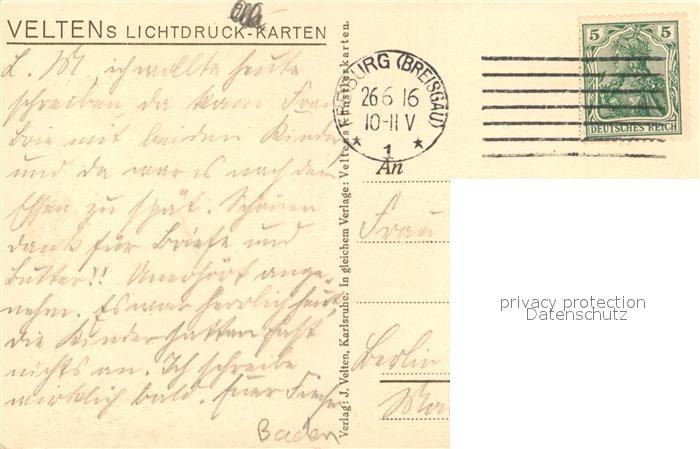 VELTENS LICHTDRUCK-KARTEN
L. M, ich wollte heute
schreiben da kam Frau
mit beiden Kinder
und da war es nach dem
Essen zu spät. Schönen
Dank für Briefe und
Butter!! Unerhört ange-
nehm. Es war herrlich heut,
die Kinder hatten fast
nichts an. Ich schreibe
wirklich bald. Euer
Baden
Verlag: J. Velten, Karlsruhe: In gleichem Verlage: Veltens Künstlerkarten.
FREIBURG (BREISGAU)
26 6 16
10-11 V
* 1 *
5 5
DEUTSCHES REICH
An
Frau
Berlin
privacy protection
Datenschutz